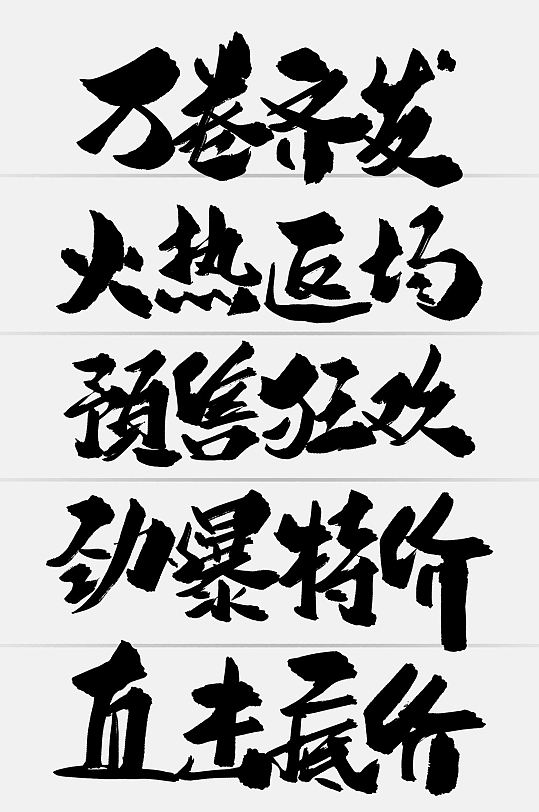 万卷齐发
火热返场
预售狂欢
劲爆特价
直击底价